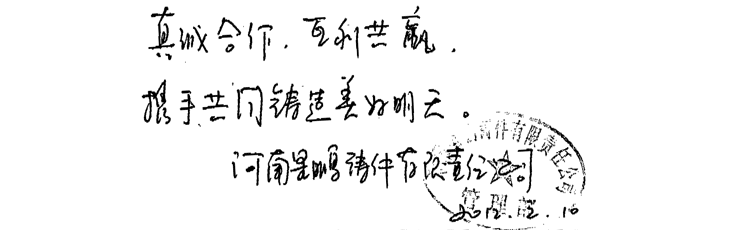 真诚合作，互利共赢，
携手共同铸造美好明天。
河南星鹏铸件有限责任公司
铸件有限责任公司
管理部
2012.12.10